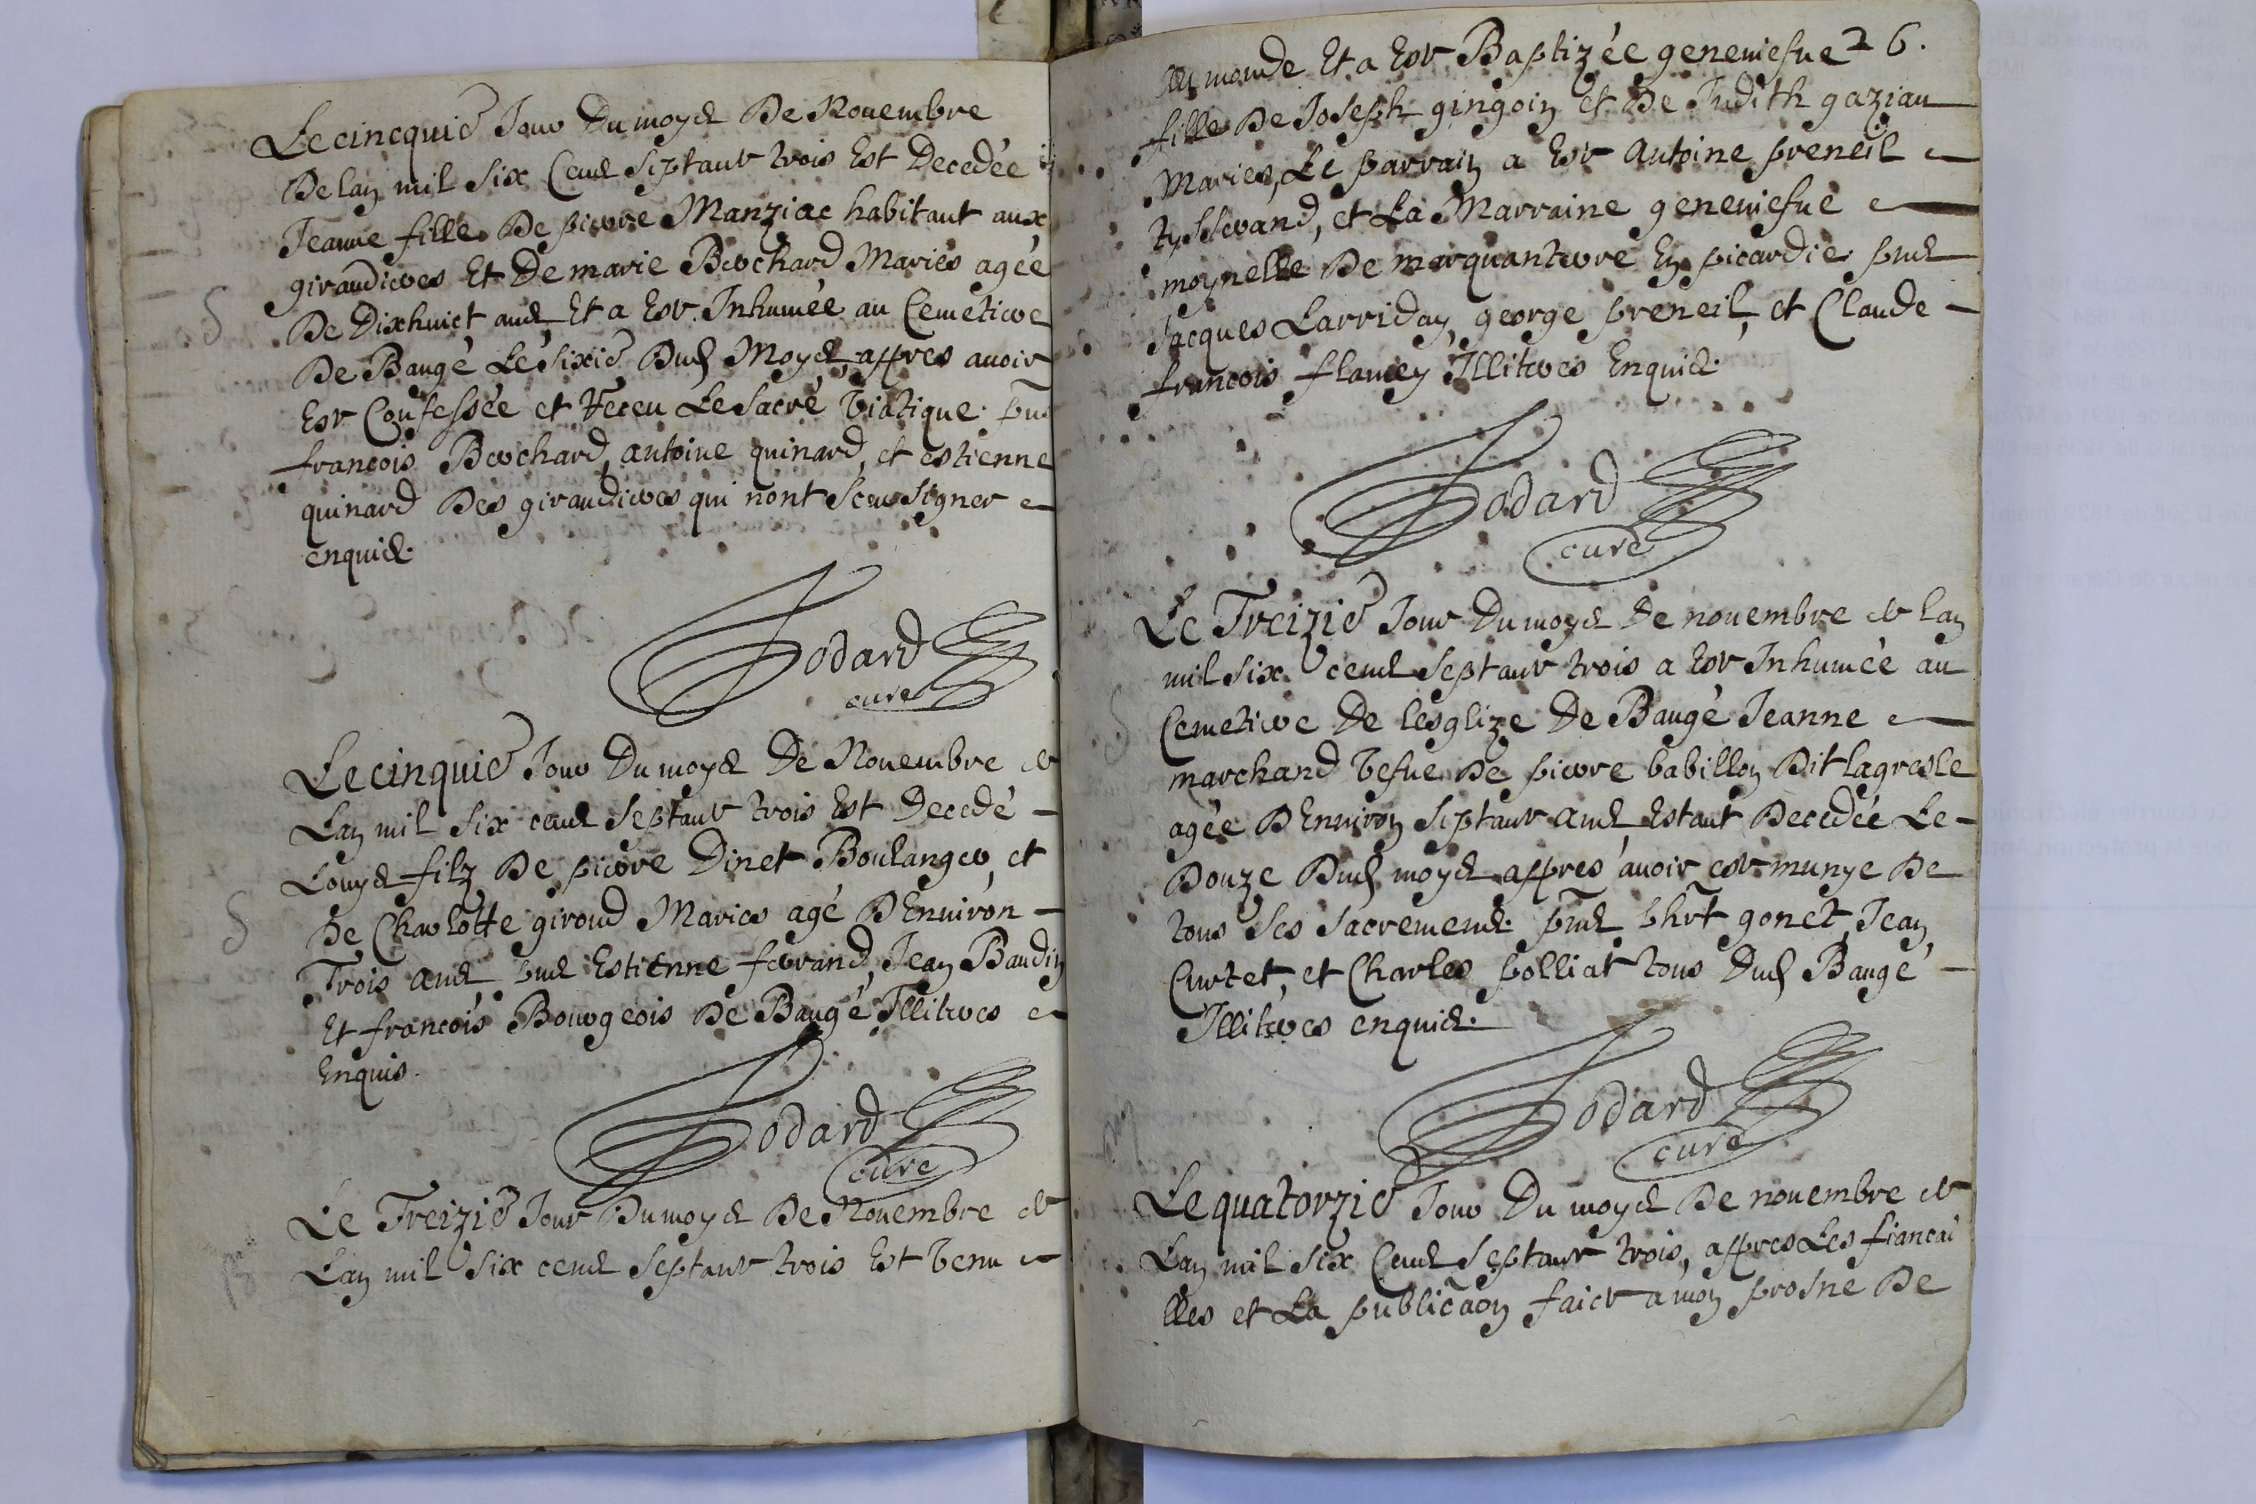 Le cinquie Jour Du moys De Novembre
De lan mil six Cens septante trois Est Decedée
Jeanne fille De pierre Manziac habitant aux
giraudieres Et De marie Berchard Mariés agée
De Dixhuict ans Et a Este Inhumée au Cemetiere
De Baugé Le sixie Dud Moys, appres avoir
Este Confessée et Receu Le Sacré Viatique. pns
francois Berchard, antoine quinard, et estienne
quinard Des giraudieres qui nont sceu signer
enquis.
Jodard
curé
Le cinquie Jour Du moys De Novembre de
Lan mil six cens septante trois Est Decedé
Louys filz De pierre Dinet Boulanger, et
De Charlotte giroud Maries agé DEnviron
Trois ans pns Estienne ferrand, Jean Baudin
Et francois Bourgeois De Baugé Illitres
Enquis.
Jodard
curé
Le Treizie Jour Du moys De Novembre de
Lan mil six cens septante trois Est Venu
26.
Au monde Et a Este Baptizée geneuiefue
fille De Joseph gingoin et De Judith gaziau
Maries, Le parrain a Este Antoine preneil
et La Marraine geneuiefue
moynelle De En picardie pns
Jacques Larriday, george preneil, et Claude
francois flamey Illitres Enquis.
Jodard
curé
Le Treizie Jour Du moys De novembre de lan
mil six cens septante trois a Este Inhumée au
Cemetiere De lesglize De Baugé Jeanne
marchand Vefue De pierre babillon Dit lagresle
agée DEnviron septante ans Estant Decedée Le
Douze Dud moys appres avoir este munye De
tous ses sacremens. pns phrt gonet, Jean
Curtet, et Charles polliat tous Dud Baugé
Illitres enquis.
Jodard
curé
Le quatorzie Jour Du moys De novembre de
Lan mil six Cens septante trois, appres Les fiancai
lles et La publicaon faicte a mon prosne De